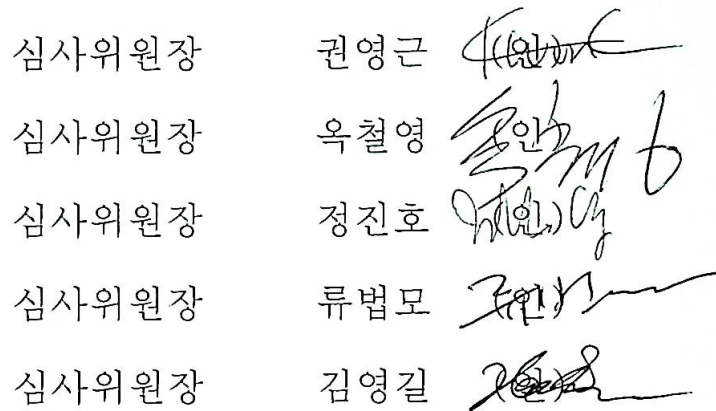 심사위원장 권영근 (인)
심사위원장 옥철영 (인)
심사위원장 정진호 (인)
심사위원장 류법모 (인)
심사위원장 김영길 (인)